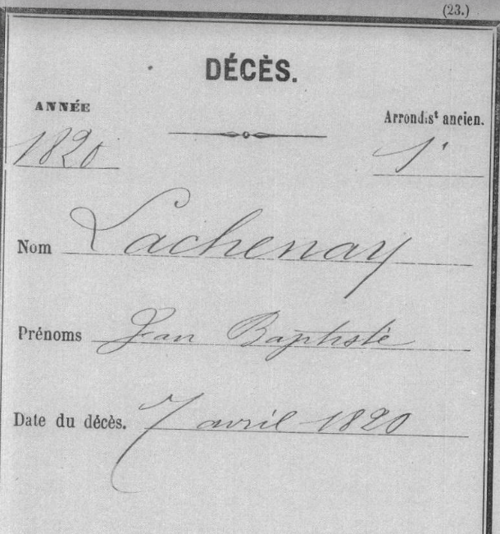 (23.)
DÉCÈS.
ANNÉE
Arrondist ancien.
1820
1r
Nom Lachenay
Prénoms Jean Baptiste
Date du décès. 7 avril 1820